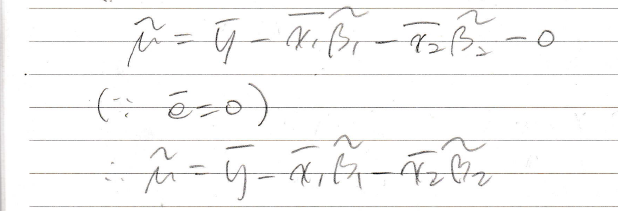 μ̃ = ȳ - x̄₁β̃₁ - x̄₂β̃₂ - 0
(∵ ē=0)
∴ μ̃ = ȳ - x̄₁β̃₁ - x̄₂β̃₂